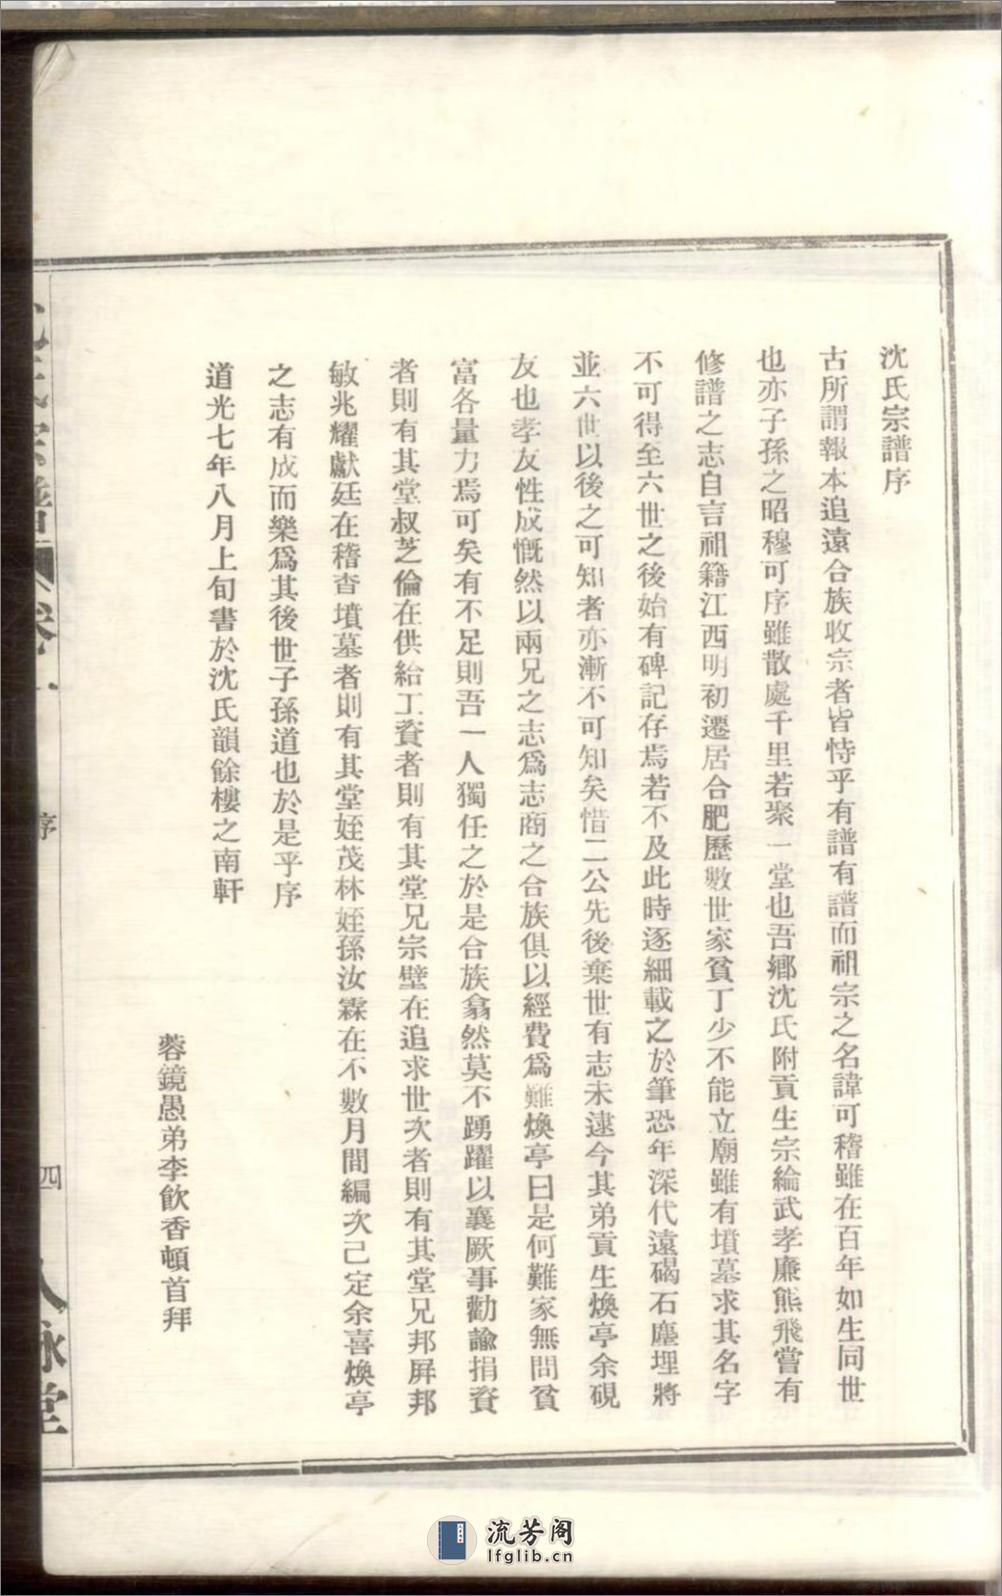 沈氏宗譜序
古所謂報本追遠合族收宗者皆恃乎有譜有譜而祖宗之名諱可稽雖在百年如生同世
也亦子孫之昭穆可序雖散處千里若聚一堂也吾鄉沈氏附貢生宗綸武孝廉熊飛嘗有
修譜之志自言祖籍江西明初遷居合肥歷數世家貧丁少不能立廟雖有墳墓求其名字
不可得至六世之後始有碑記存焉若不及此時逐細載之於筆恐年深代遠碣石塵埋將
並六世以後之可知者亦漸不可知矣惜二公先後棄世有志未逮今其弟貢生煥亭余硯
友也孝友性成慨然以兩兄之志爲志商之合族俱以經費爲難煥亭曰是何難家無問貧
富各量力焉可矣有不足則吾一人獨任之於是合族翕然莫不踴躍以襄厥事勸諭捐資
者則有其堂叔芝倫在供給工資者則有其堂兄宗壁在追求世次者則有其堂兄邦屏邦
敏兆耀獻廷在稽查墳墓者則有其堂姪茂林姪孫汝霖在不數月間編次己定余喜煥亭
之志有成而樂爲其後世子孫道也於是乎序
道光七年八月上旬書於沈氏韻餘樓之南軒
蓉鏡愚弟李飲香頓首拜
序
四
流芳阁
lfglib.cn